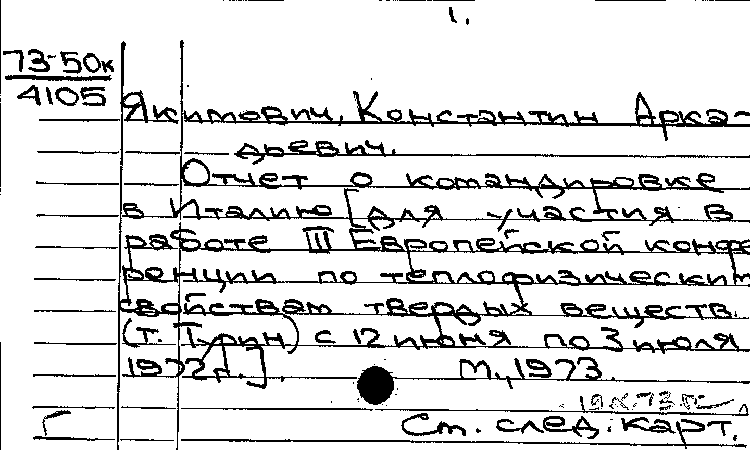 1.
73-50к
4105
Якимович, Константин Арка-
дьевич.
Отчет о командировке
в Италию [для участия в
работе III Европейской конфе
ренции по теплофизическим
свойствам твердых веществ
(т. Турин) с 12 июня по 3 июля
1972г.]. М., 1973.
Г
См. след. карт.